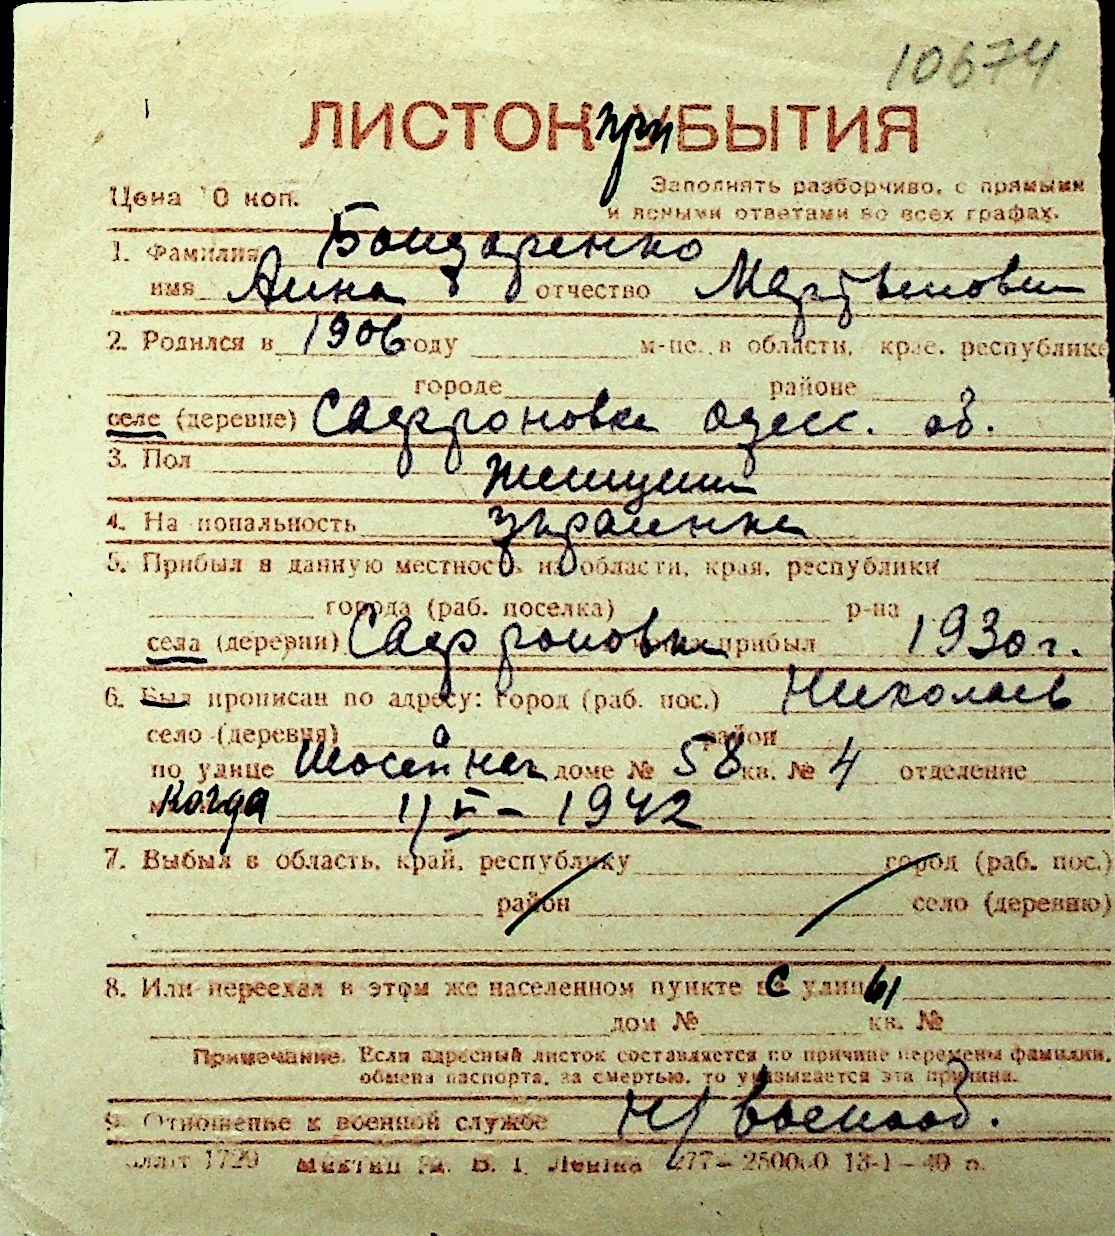 10674
ЛИСТОК при УБЫТИЯ
Цена 10 коп. Заполнять разборчиво, с прямыми
и ясными ответами во всех графах.
1. Фамилия Бондаренко
имя Анна отчество Мартыновн
2. Родился в 1906 году м-це, в области, крае, республике
городе районе
селе (деревне) Сафроновка одесс. об.
3. Пол женщина
4. Национальность украинка
5. Прибыл в данную местность из области, края, республики
города (раб. поселка) р-на
села (деревни) Сафроновки прибыл 1930 г.
6. Был прописан по адресу: город (раб. пос.) Николаев
село (деревня) район
по улице Шосейная доме № 58 кв. № 4 отделение
Когда 1/V - 1942
7. Выбыл в область, край, республику город (раб. пос.)
район село (деревню)
8. Или переехал в этом же населенном пункте с улицы
дом № кв. №
Примечание. Если адресный листок составляется по причине перемены фамилии,
обмена паспорта, за смертью, то указывается эта причина.
9. Отношенье к военной службе н/военооб.
1720 В. І. Леніна 277 – 13-1 – 40 р.